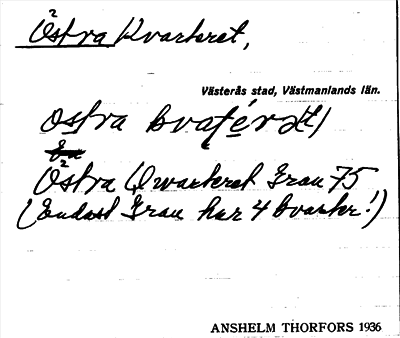 Östra Kvarteret,
Västerås stad, Västmanlands län.
Östra Qvarteret Grau 75
(Endast Grau har 4 kvarter!)
ANSHELM THORFORS 1936